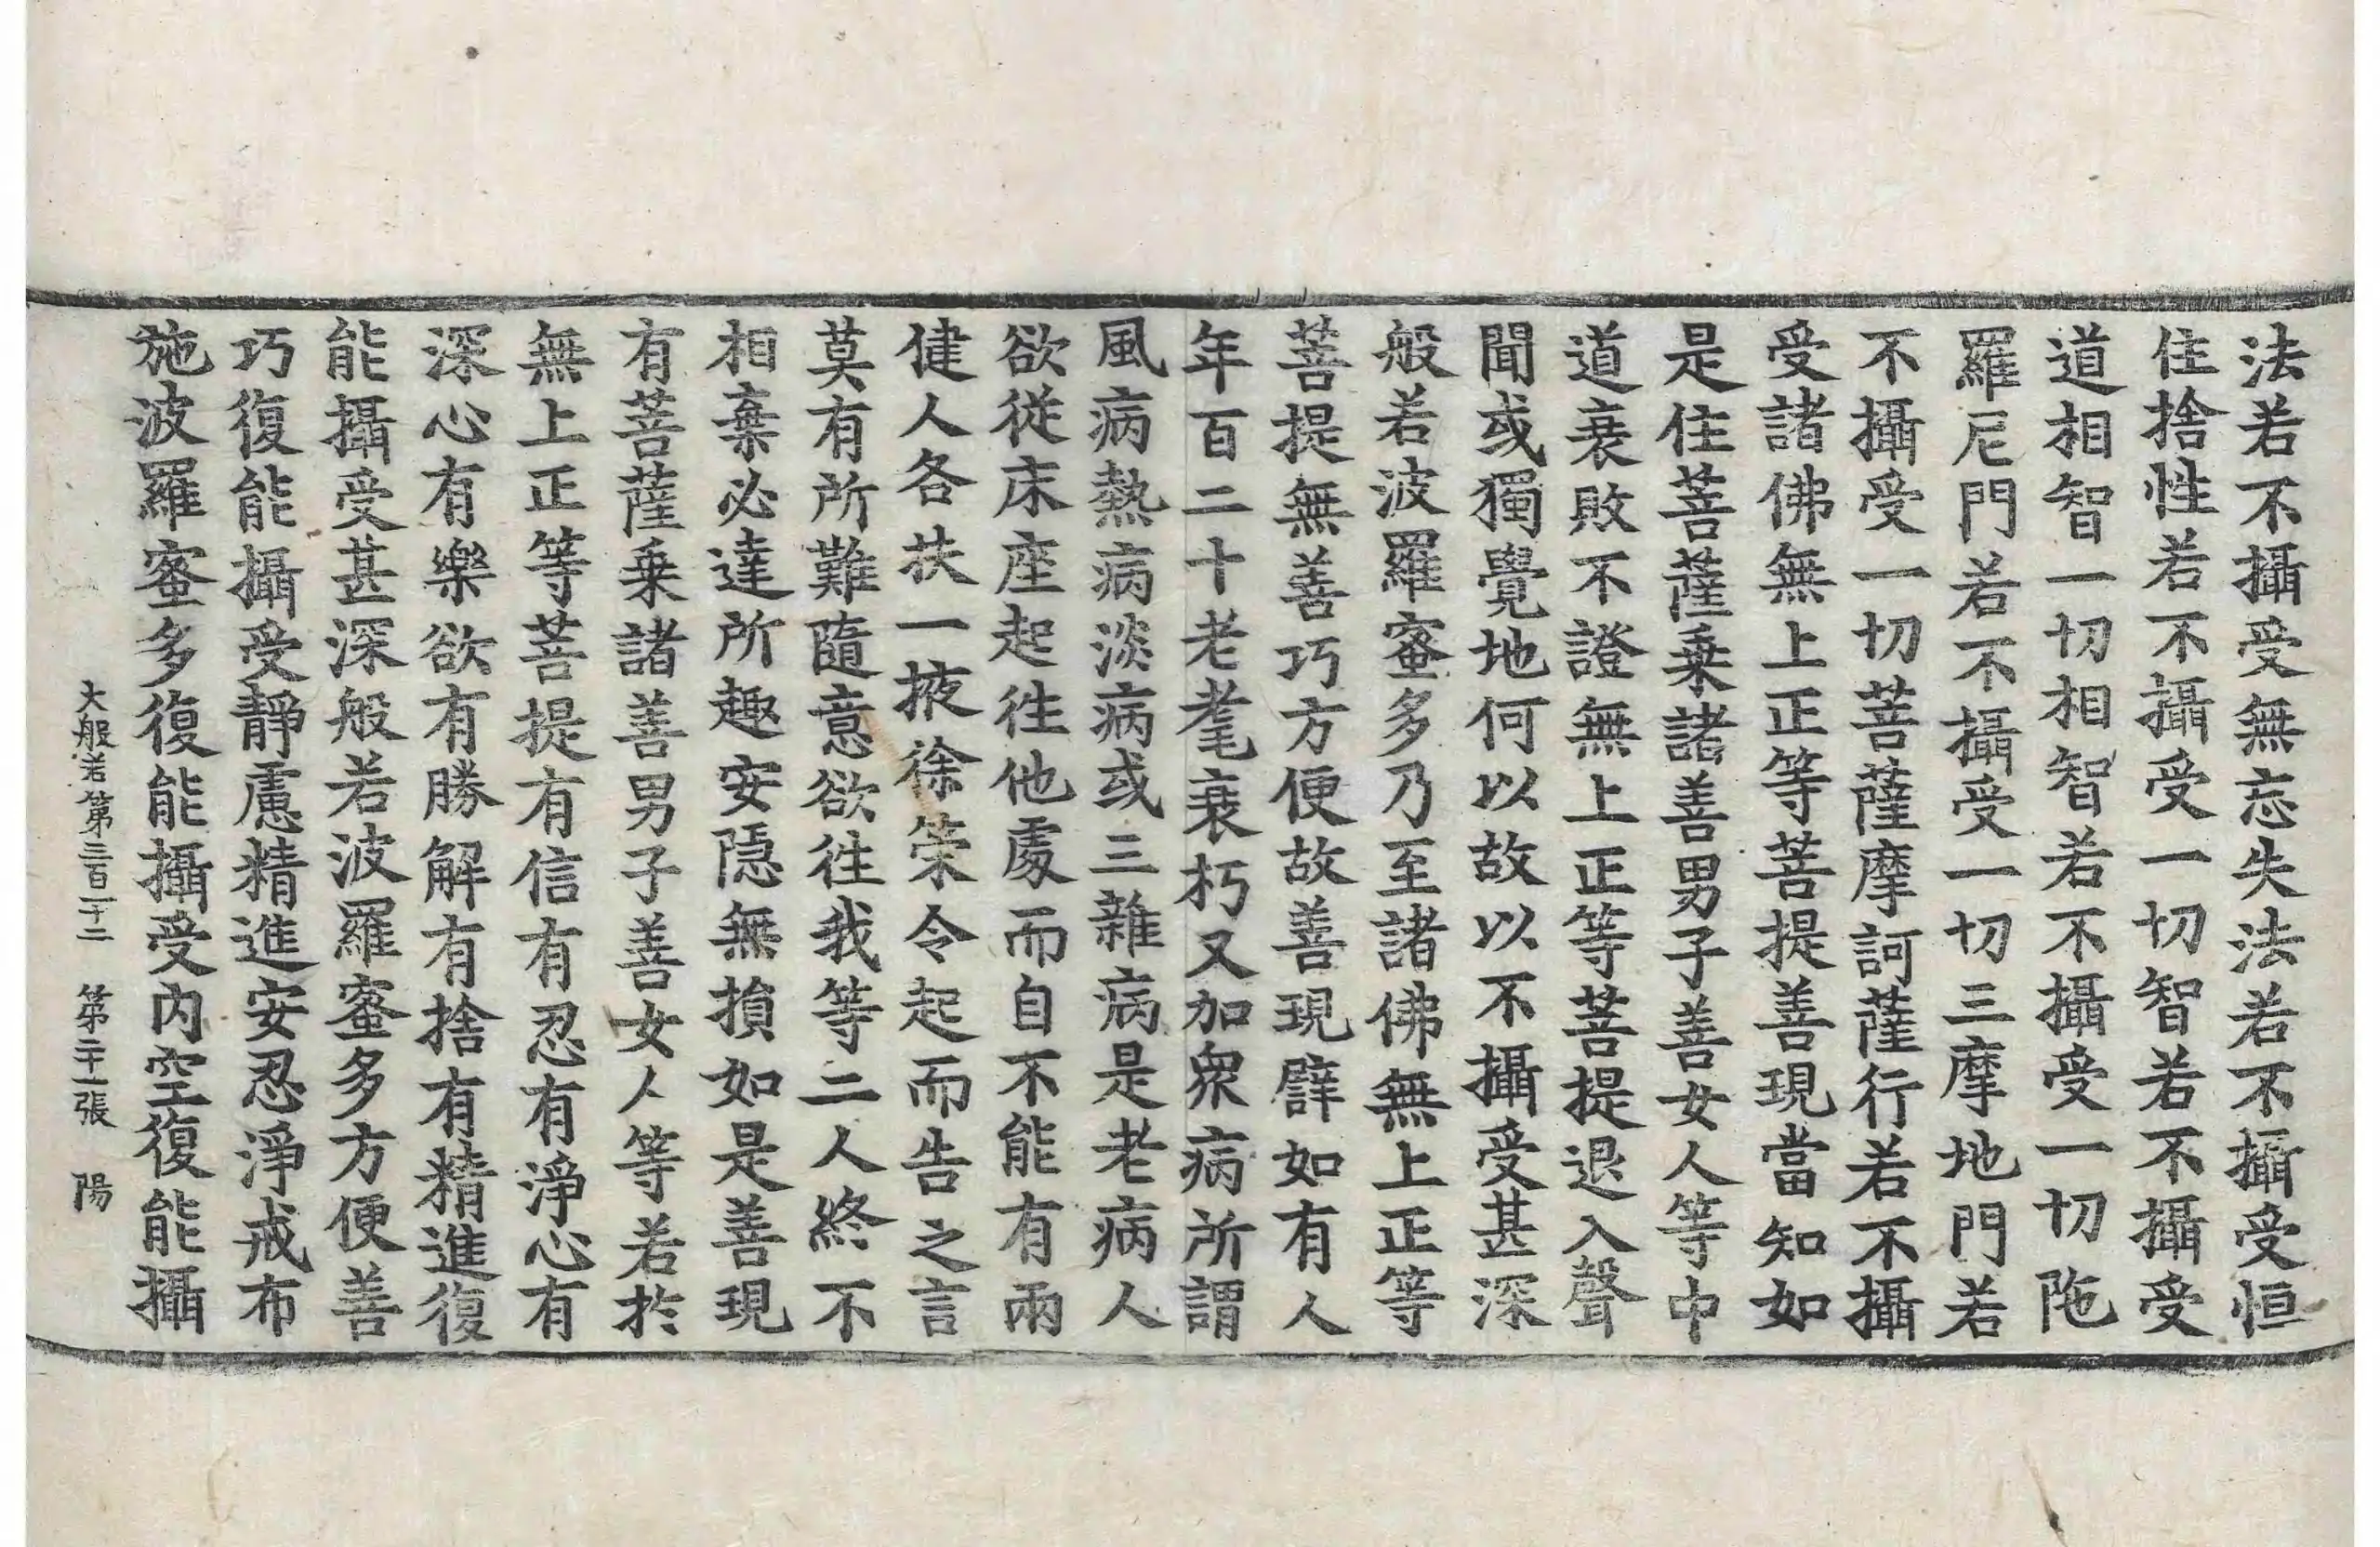 法若不攝受無忘失法若不攝受恒
住捨性若不攝受一切智若不攝受
道相智一切相智若不攝受一切陁
羅尼門若不攝受一切三摩地門若
不攝受一切菩薩摩訶薩行若不攝
受諸佛無上正等菩提善現當知如
是住菩薩乗諸善男子善女人等中
道衰敗不證無上正等菩提退入聲
聞或獨覺地何以故以不攝受甚深
般若波羅蜜多乃至諸佛無上正等
菩提無善巧方便故善現譬如有人
年百二十老耄衰朽又加衆病所謂
風病熱病淡病或三雜病是老病人
欲從床座起往他處而自不能有兩
健人各扶一掖徐榮令起而告之言
莫有所難隨意欲往我等二人終不
相棄必達所趣安隱無損如是善現
有菩薩乗諸善男子善女人等若於
無上正等菩提有信有忍有淨心有
深心有樂欲有勝解有捨有精進復
能攝受甚深般若波羅蜜多方便善
巧復能攝受靜慮精進安忍淨戒布
施波羅蜜多復能攝受內空復能攝
大般若第三百一十二 第二十一張 陽